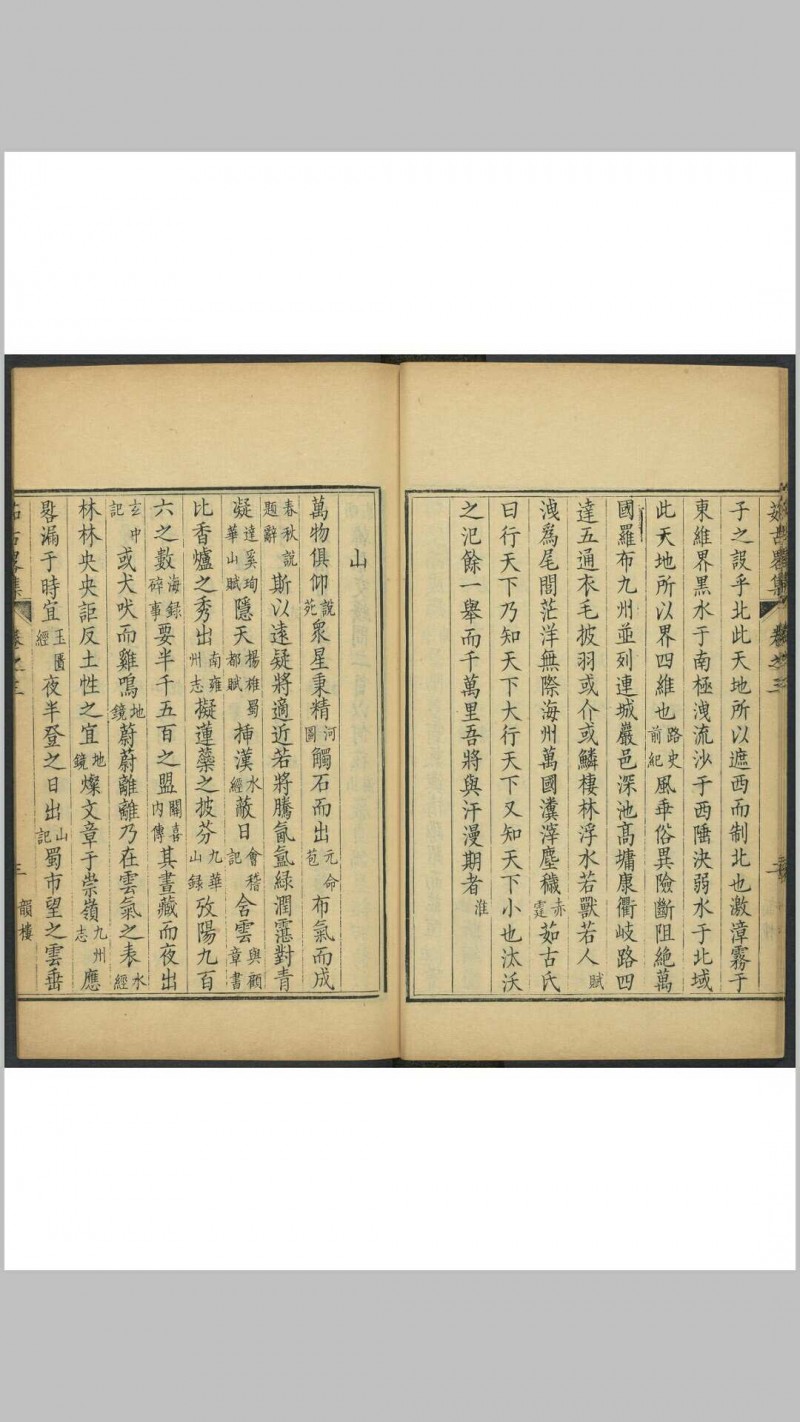 茹古畧集 卷之三
子之設乎北此天地所以遮西而制北也激漳霧于
東維界黑水于南極洩流沙于西陲決弱水于北域
此天地所以界四維也路史前紀風乖俗異險斷阻絶萬
國羅布九州並列連城巖邑深池高墉康衢岐路四
達五通衣毛披羽或介或鱗棲林浮水若獸若人賦
洩爲尾閭茫洋無際海州萬國瀵滓塵穢赤霆茹古氏
曰行天下乃知天下大行天下又知天下小也汰沃
之汜餘一舉而千萬里吾將與汗漫期者淮
山
萬物俱仰說苑衆星秉精河圖觸石而出元命苞布氣而成
春秋說題辭斯以遠疑將適近若將騰氤氳綠潤靄對青
凝達奚珣華山賦隱天楊雄蜀都賦揷漢水經蔽日會稽記舍雲與顧章書
比香爐之秀出南雍州志擬蓮蘂之披芬九華山録攷陽九百
六之數海録碎事要半千五百之盟關喜內傳其晝藏而夜出
玄中記或犬吠而雞鳴地鏡蔚蔚離離乃在雲氣之表水經
林林央央詎反土性之宜地鏡燦文章于崇嶺九州志應
晷漏于時宜玉匱經夜半登之日出山記蜀市望之雲垂
茹古畧集 卷之三 三 韻樓